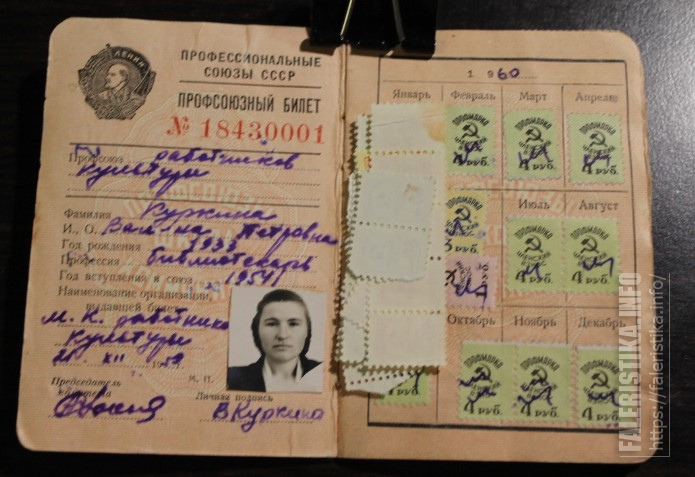 ЛЕНИН
ПРОФЕССИОНАЛЬНЫЕ
СОЮЗЫ СССР
ПРОФСОЮЗНЫЙ БИЛЕТ
№ 18430001
Профсоюз работников
культуры
Фамилия Куркина
И., О. Валентина Петровна
Год рождения 1933
Профессия библиотекарь
Год вступления в союз 1954
Наименование организации,
выдавшей билет
М. К. работников
культуры
XII 1959
Председатель
комитета
М. П.
Личная подпись
ВКуркина
1960
Январь Февраль Март Апрель
ПРОФМАРКА ПРОФМАРКА ПРОФМАРКА
4 РУБ. 4 РУБ. 4 РУБ.
Июль Август
ЧЛЕНСКИЙ ЧЛЕНСКИЙ
РУБ. 4 РУБ. 4 РУБ.
Октябрь Ноябрь Декабрь
ПРОФМАРКА ПРОФМАРКА ПРОФМАРКА
4 РУБ. 4 РУБ. 4 РУБ.
FALERISTIKA.INFO
https://faleristika.info/